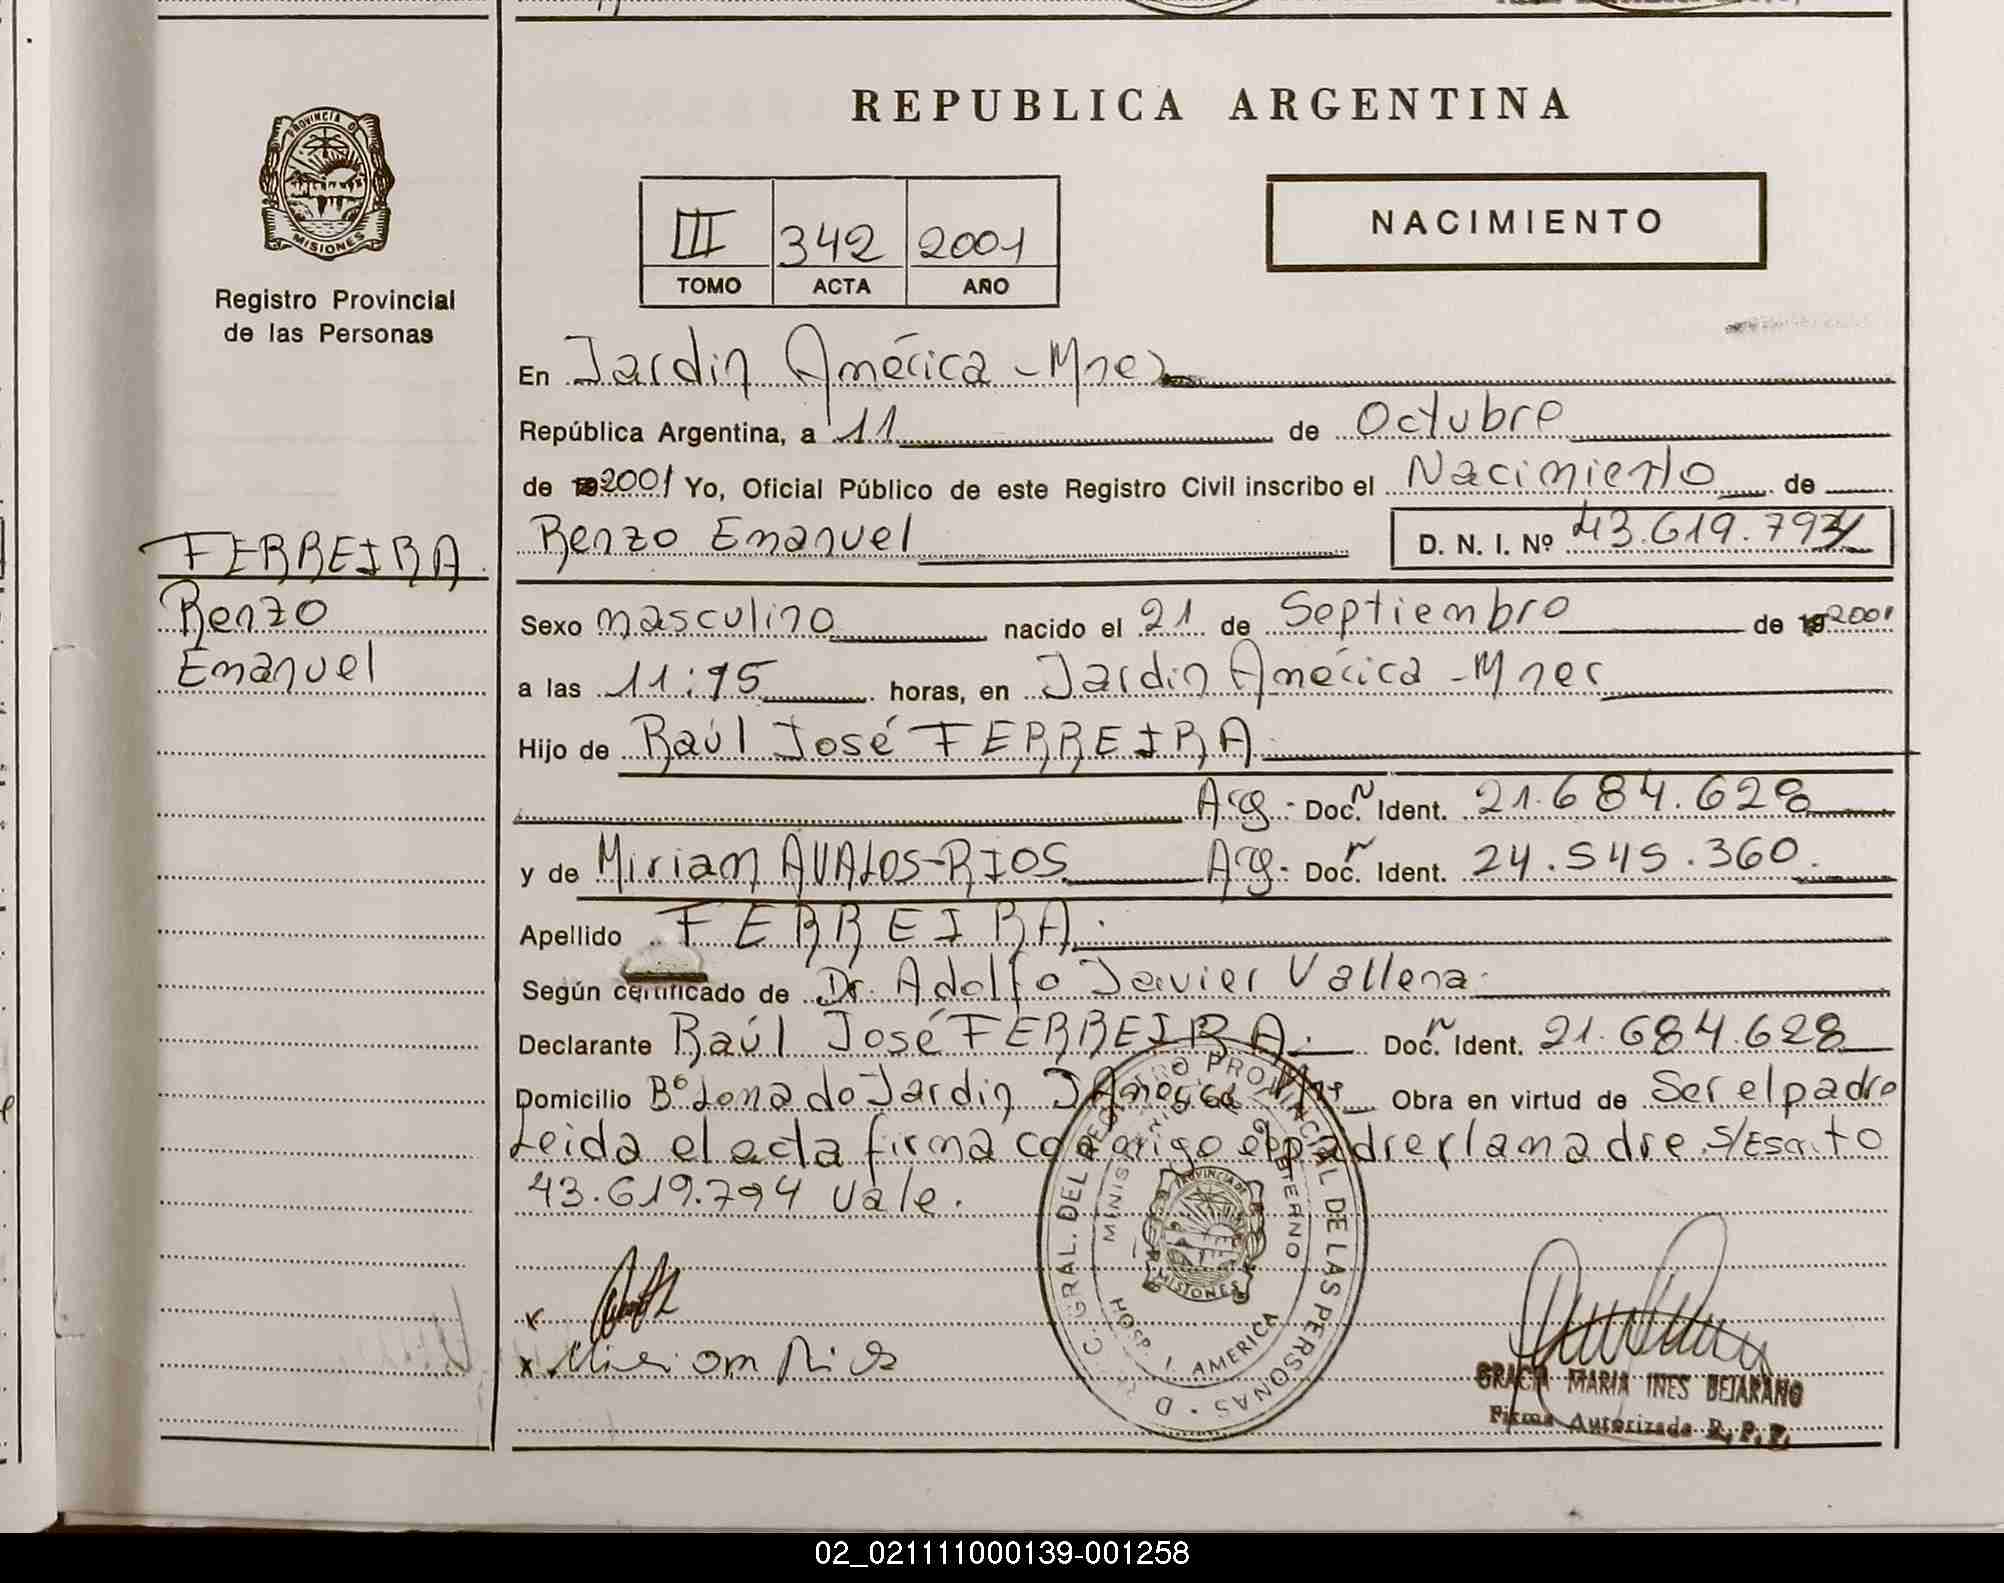 REPUBLICA ARGENTINA
PROVINCIA DE
MISIONES
Registro Provincial
de las Personas
III 342 2001
TOMO ACTA AÑO
NACIMIENTO
En Jardin América - Mnes
República Argentina, a 11 de Octubre
de 2001 Yo, Oficial Público de este Registro Civil inscribo el Nacimiento de
Renzo Emanuel D. N. I. Nº 43.619.794
FERREIRA
Renzo
Emanuel
Sexo masculino nacido el 21 de Septiembre de 2001
a las 11:45 horas, en Jardin América - Mnes
Hijo de Raúl José FERREIRA
Arg - Doc. Ident. 21.684.628
y de Miriam AVALOS-RIOS Arg - Doc. Ident. 24.545.360.
Apellido FERREIRA.
Según certificado de Dr. Adolfo Javier Vallena
Declarante Raúl José FERREIRA. Doc. Ident. 21.684.628
Domicilio Bº Lomado Jardin América Obra en virtud de Ser el padre
Leida el acta firma conmigo el padre y la madre s/Escrito
43.619.794 Vale.
x
x Miriam Rios
GRAL. DEL REGISTRO PROVINCIAL DE LAS PERSONAS
MINISTERIO DE GOBIERNO
PROVINCIA DE
MISIONES
HOSP. J. AMERICA
GRACIA MARIA INES BEJARANO
Firma Autorizada R. P. P.
02_021111000139-001258